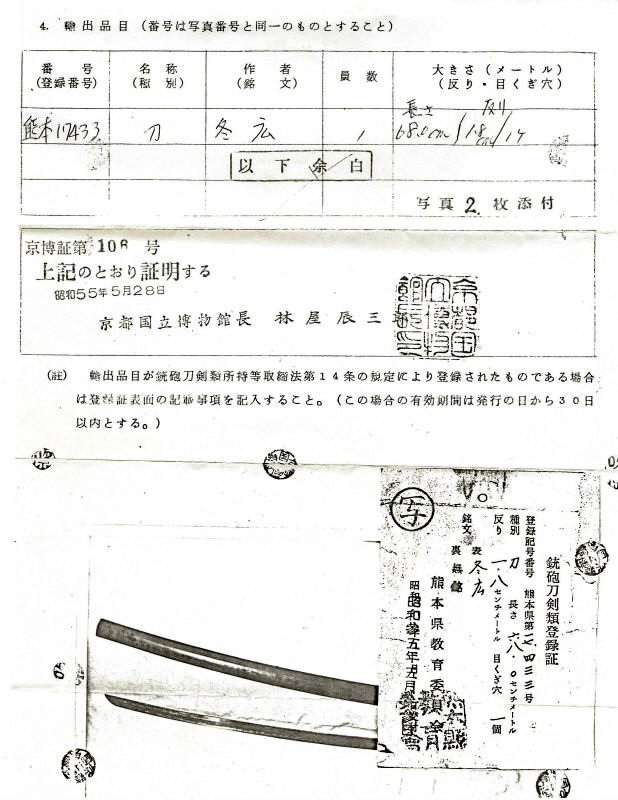 4. 輸出品目（番号は写真番号と同一のものとすること）
番号
(登録番号)
名称
(種別)
作者
(銘文)
員数
大きさ（メートル）
(反り・目くぎ穴)
長さ 反り
熊本17433 刀 冬広 1 68.0cm/1.8cm/1ケ
以下余白
写真2.枚添付
京博証第108号
上記のとおり証明する
昭和55年5月28日
京都国立博物館長 林屋辰三郎
(註) 輸出品目が銃砲刀剣類所持等取締法第14条の規定により登録されたものである場合
は登録証表面の記載事項を記入すること。（この場合の有効期間は発行の日から30日
以内とする。）
写
銃砲刀剣類登録証
登録記号番号 熊本県第一七四三三号
種別 刀 長さ 六八.〇センチメートル
反り 一.八センチメートル 目くぎ穴 一個
銘文 表 冬広
裏 無銘
熊本県教育委員会
昭和五五年五月